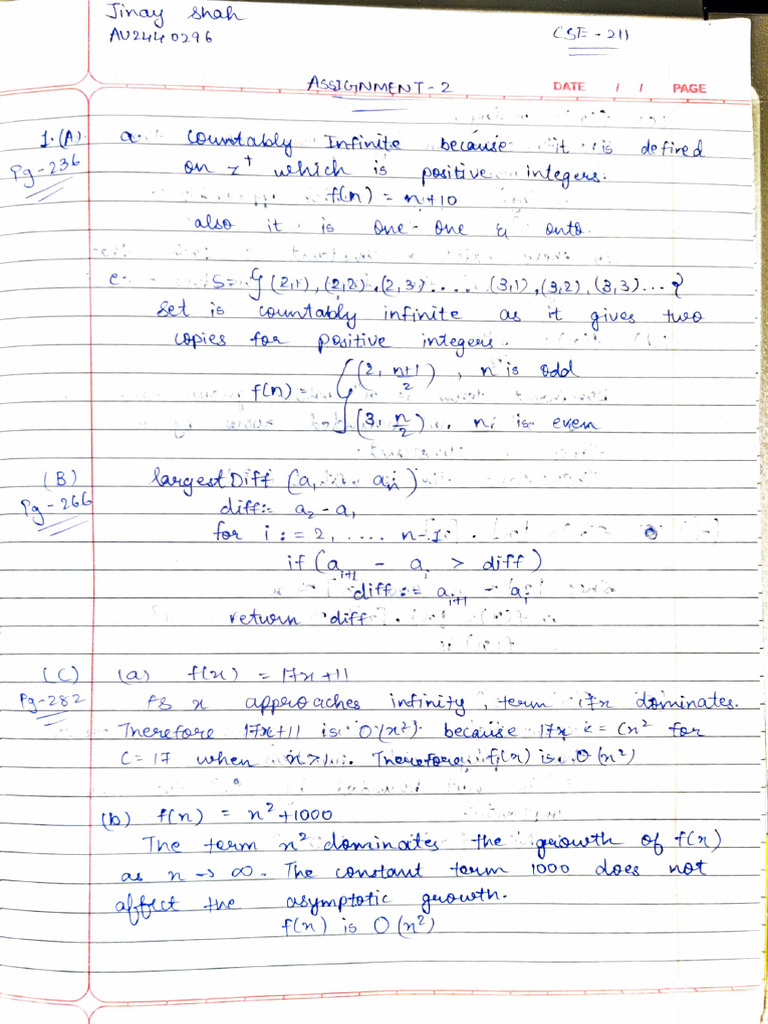 Jinay Shah
AU2440296
CSE-211
ASSIGNMENT-2
DATE / / PAGE
1.(A) a. Countably Infinite because it is defined
Pg-236 on z⁺ which is positive integers.
f(n) = n+10
also it is one-one & onto.
e. S = { (2,1), (2,2), (2,3) .... (3,1), (3,2), (3,3)... }
Set is countably infinite as it gives two
copies for positive integers.
f(n) = { (2, (n+1)/2) , n is odd
(3, n/2) , n is even
(B) largestDiff (a₁ ... aₙ)
Pg-266 diff:= a₂ - a₁
for i := 2, .... n-1
if (aᵢ₊₁ - aᵢ > diff)
diff := aᵢ₊₁ - aᵢ
return diff
(C) (a) f(x) = 17x+11
Pg-282 As x approaches infinity, term 17x dominates.
Therefore 17x+11 is O(x²) because 17x <= Cx² for
C=17 when x>1. Therefore f(x) is O(x²)
(b) f(x) = x²+1000
The term x² dominates the growth of f(x)
as x → ∞. The constant term 1000 does not
affect the asymptotic growth.
f(x) is O(x²)